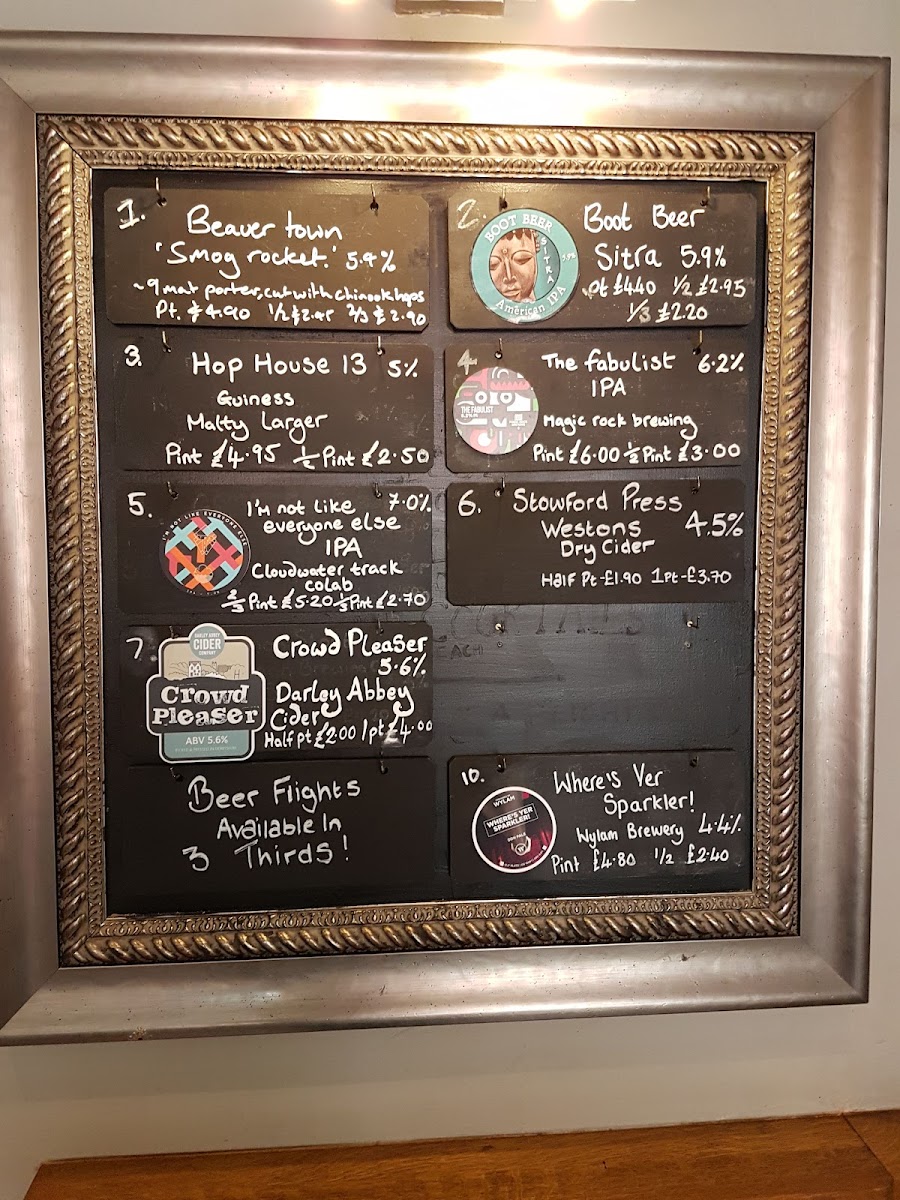 1.
Beaver town
'Smog rocket.' 5.4%
~9 malt porter, cut with chinook hops
Pt. £4.90 1/2 £2.45 2/3 £2.90
2.
BOOT BEER
SITRA
5.9%
American IPA
Boot Beer
Sitra 5.9%
Pt £4.40 1/2 £2.95
1/3 £2.20
3.
Hop House 13 5%
Guiness
Malty Larger
Pint £4.95 1/2 Pint £2.50
4.
THE FABULIST
The fabulist 6.2%
IPA
Magic rock brewing
Pint £6.00 1/2 Pint £3.00
5.
I'M NOT LIKE EVERYONE ELSE
I'm not like 7.0%
everyone else
IPA
Cloudwater track
colab
2/3 Pint £5.20 1/3 Pint £2.70
6.
Stowford Press
Westons 4.5%
Dry Cider
Half Pt-£1.90 1pt-£3.70
7.
DARLEY ABBEY
CIDER
COMPANY
Crowd
Pleaser
ABV 5.6%
Crowd Pleaser
5.6%
Darley Abbey
Cider
Half pt £2.00 1pt £4.00
EACH
Beer Flights
Available In
3 Thirds!
10.
WYLAM
WHERE'S YER
SPARKLER!
Where's Yer
Sparkler!
Wylam Brewery 4.4%
Pint £4.80 1/2 £2.40